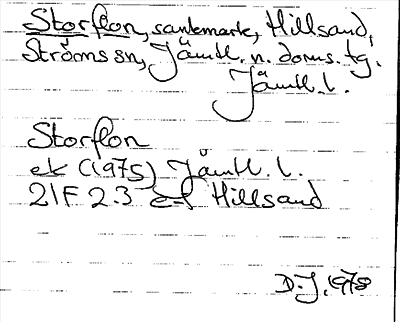 Storflon, sankmark, Hillsand,
Ströms sn, Jämtl. n. doms. tg.
Jämtl. l.
Storflon
ek (1975) Jämtl. l.
21F 2.3 ef Hillsand
D.J. 1978